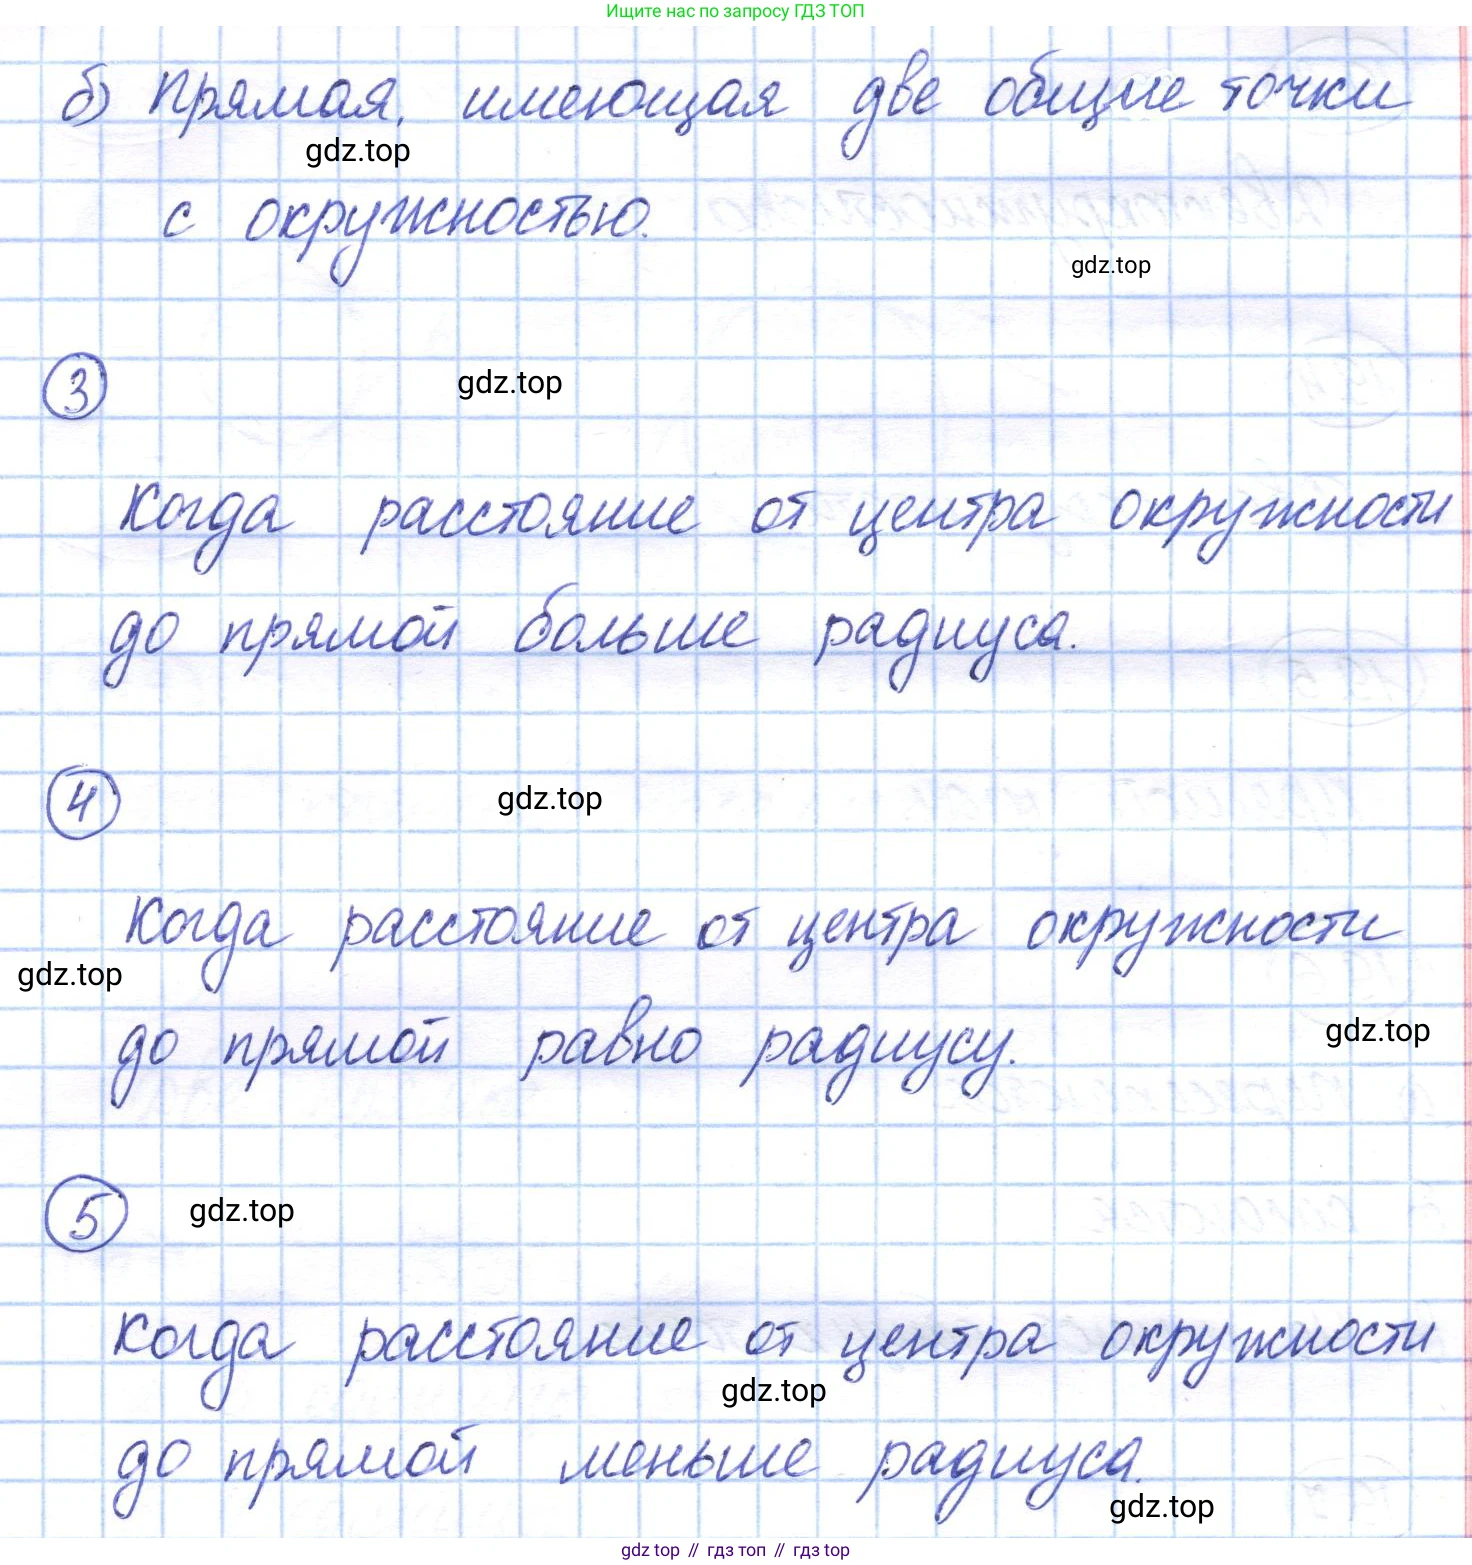 Ищите нас по запросу ГДЗ ТОП
б) Прямая, имеющая две общие точки
gdz.top
с окружностью.
gdz.top
3
gdz.top
Когда расстояние от центра окружности
до прямой больше радиуса.
4
gdz.top
Когда расстояние от центра окружности
gdz.top
до прямой равно радиусу.
gdz.top
5
gdz.top
Когда расстояние от центра окружности
gdz.top
до прямой меньше радиуса.
gdz.top
gdz top // гдз топ // гдз top